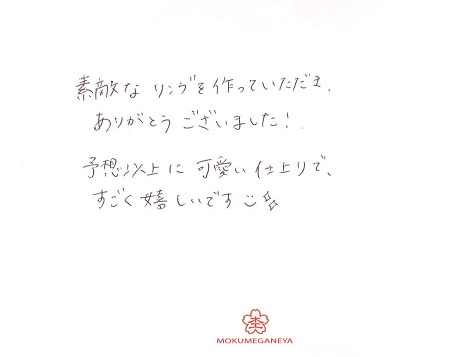 素敵な リングを作っていただき、
ありがとう ございました!
予想以上に 可愛い仕上りで、
すごく嬉しいです
MOKUMEGANEYA